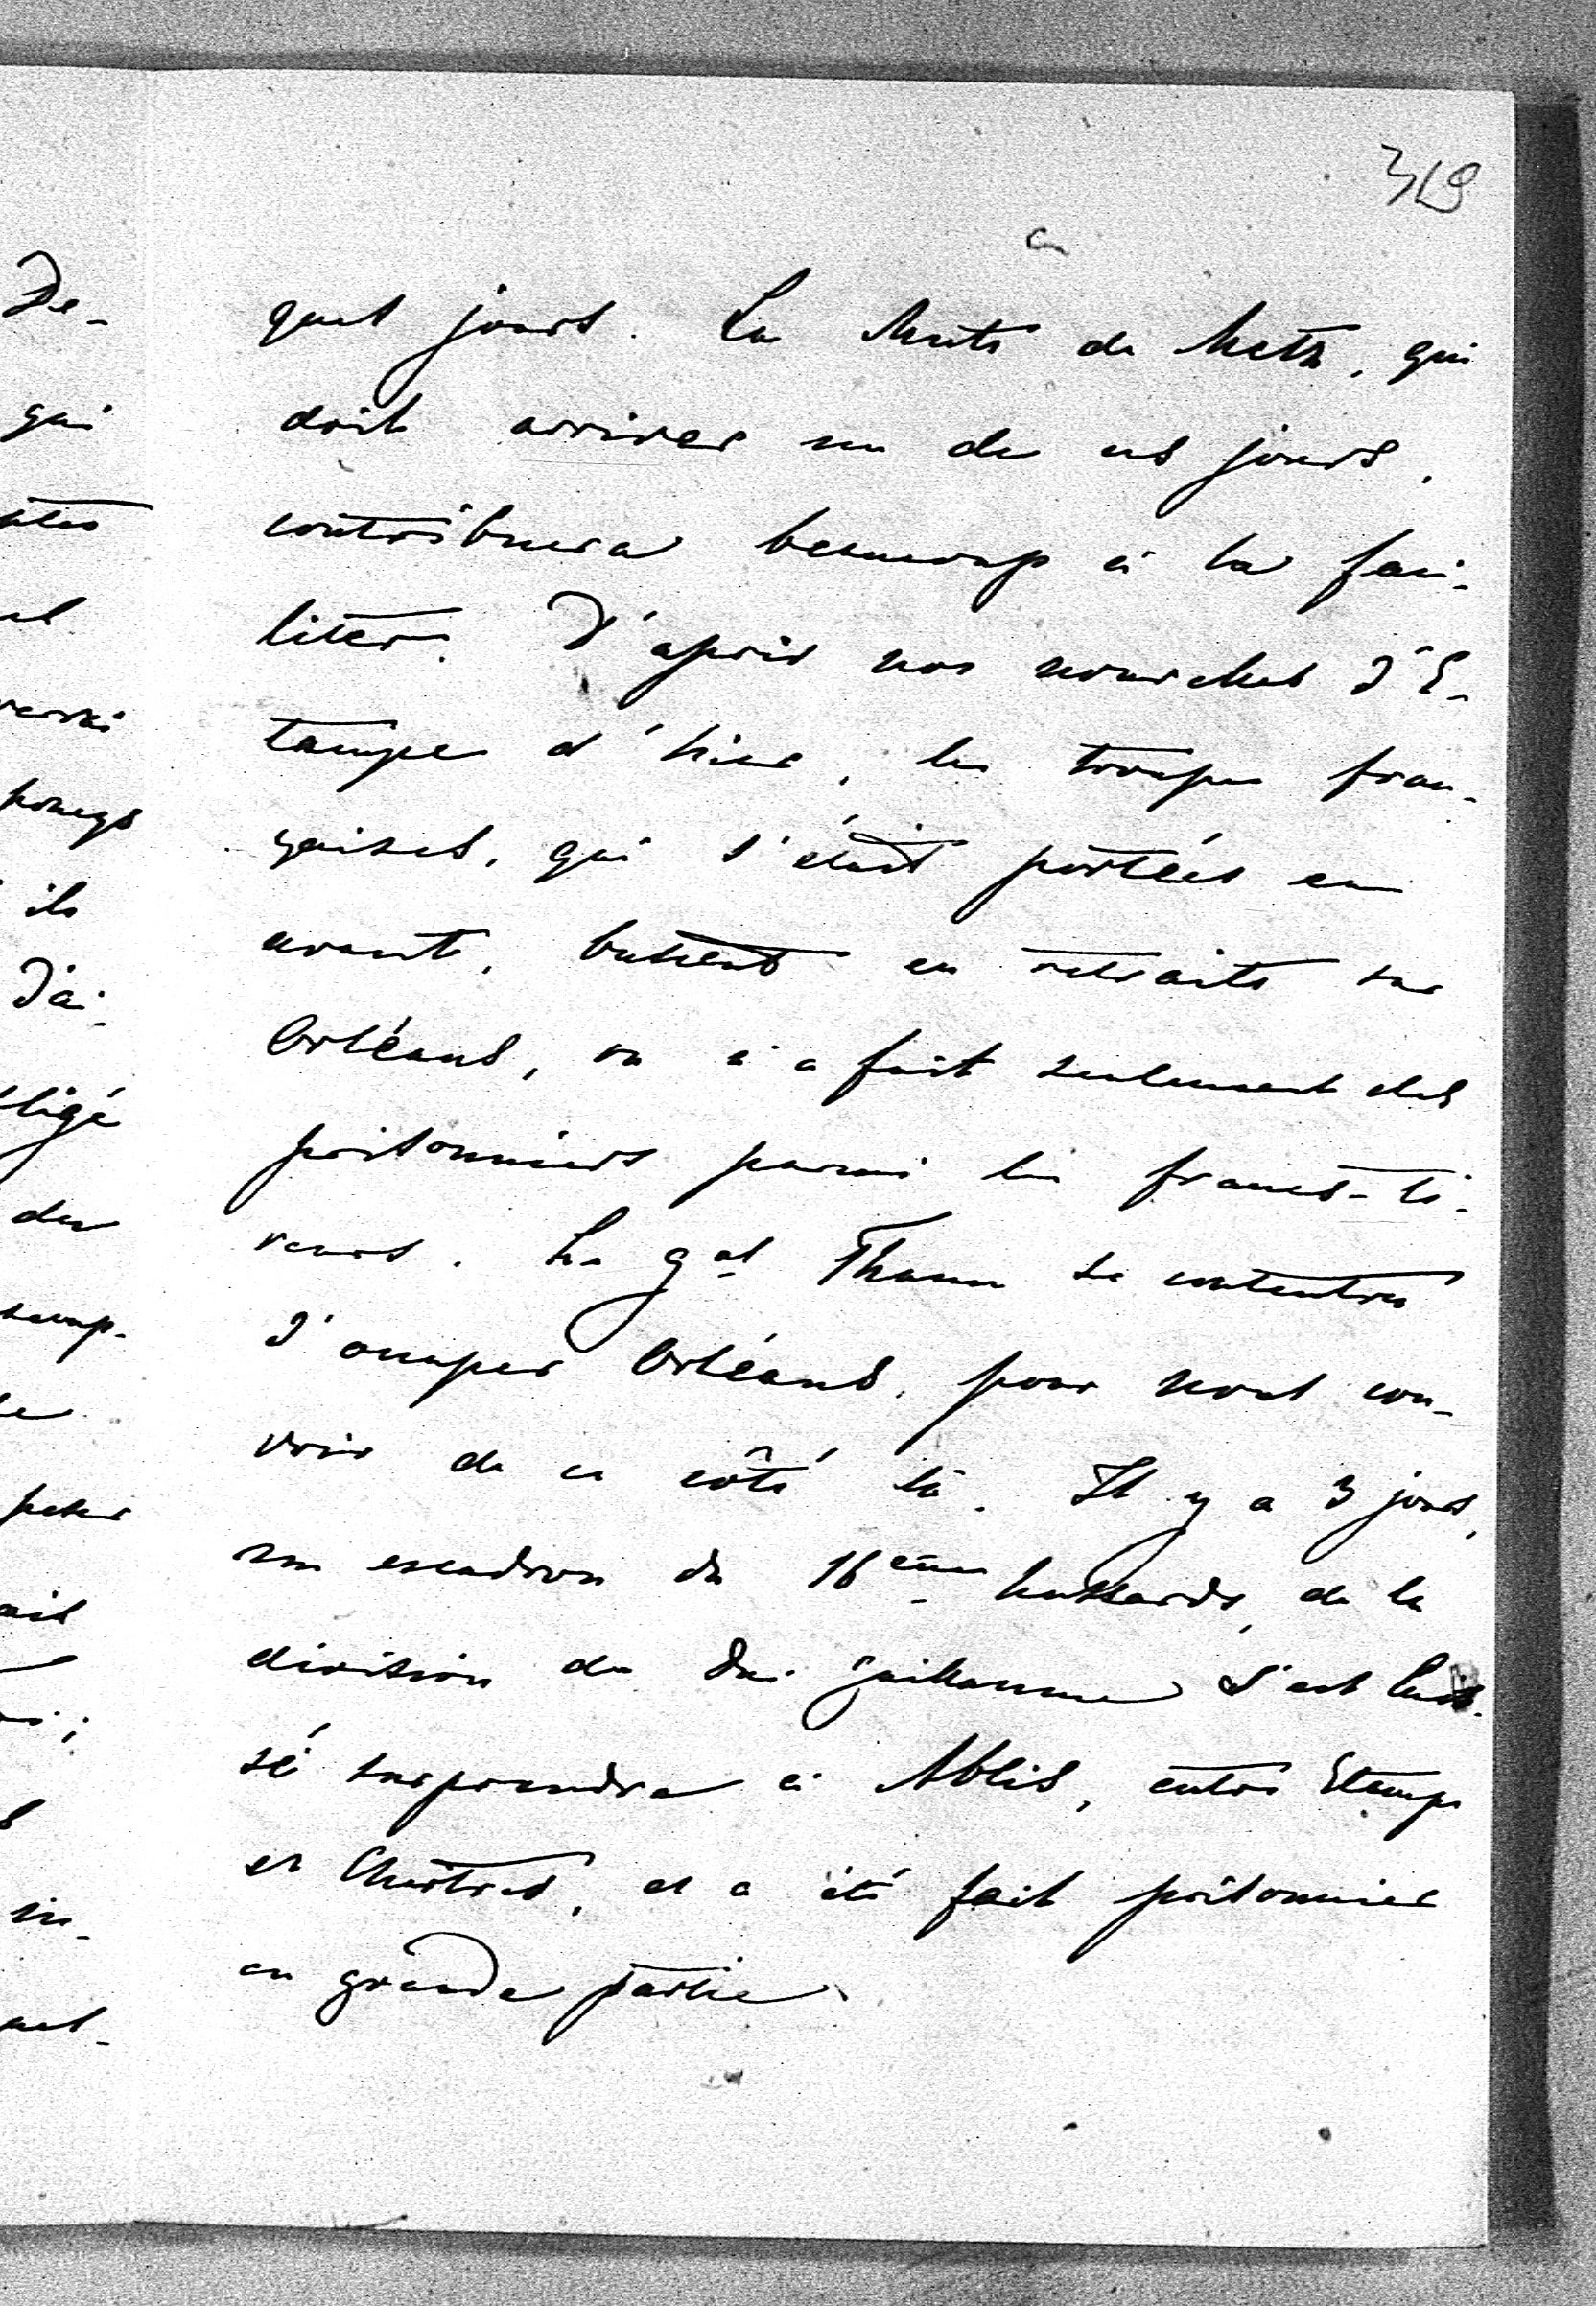 319
ques jours. La chute de Metz, qui
doit arriver un de ces jours,
contribuera beaucoup à la faci-
liter. D'après nos nouvelles d'E-
tampes d'hier, les troupes fran-
çaises, qui s'étaient portées en
avant, battent en retraite sur
Orléans, on a fait seulement des
prisonniers parmi les francs-ti-
reurs. Le gal Thann se contentera
d'occuper Orléans, pour nous cou-
vrir de ce côté là. Il y a 3 jours,
un escadron du 16ème hussards, de la
division du duc Guillaume s'est lais-
sé surprendre à Ablis, entre Etampes
et Chartres, et a été fait prisonnier
en grande partie
De-
qui
ils
J'ai
bligé
des